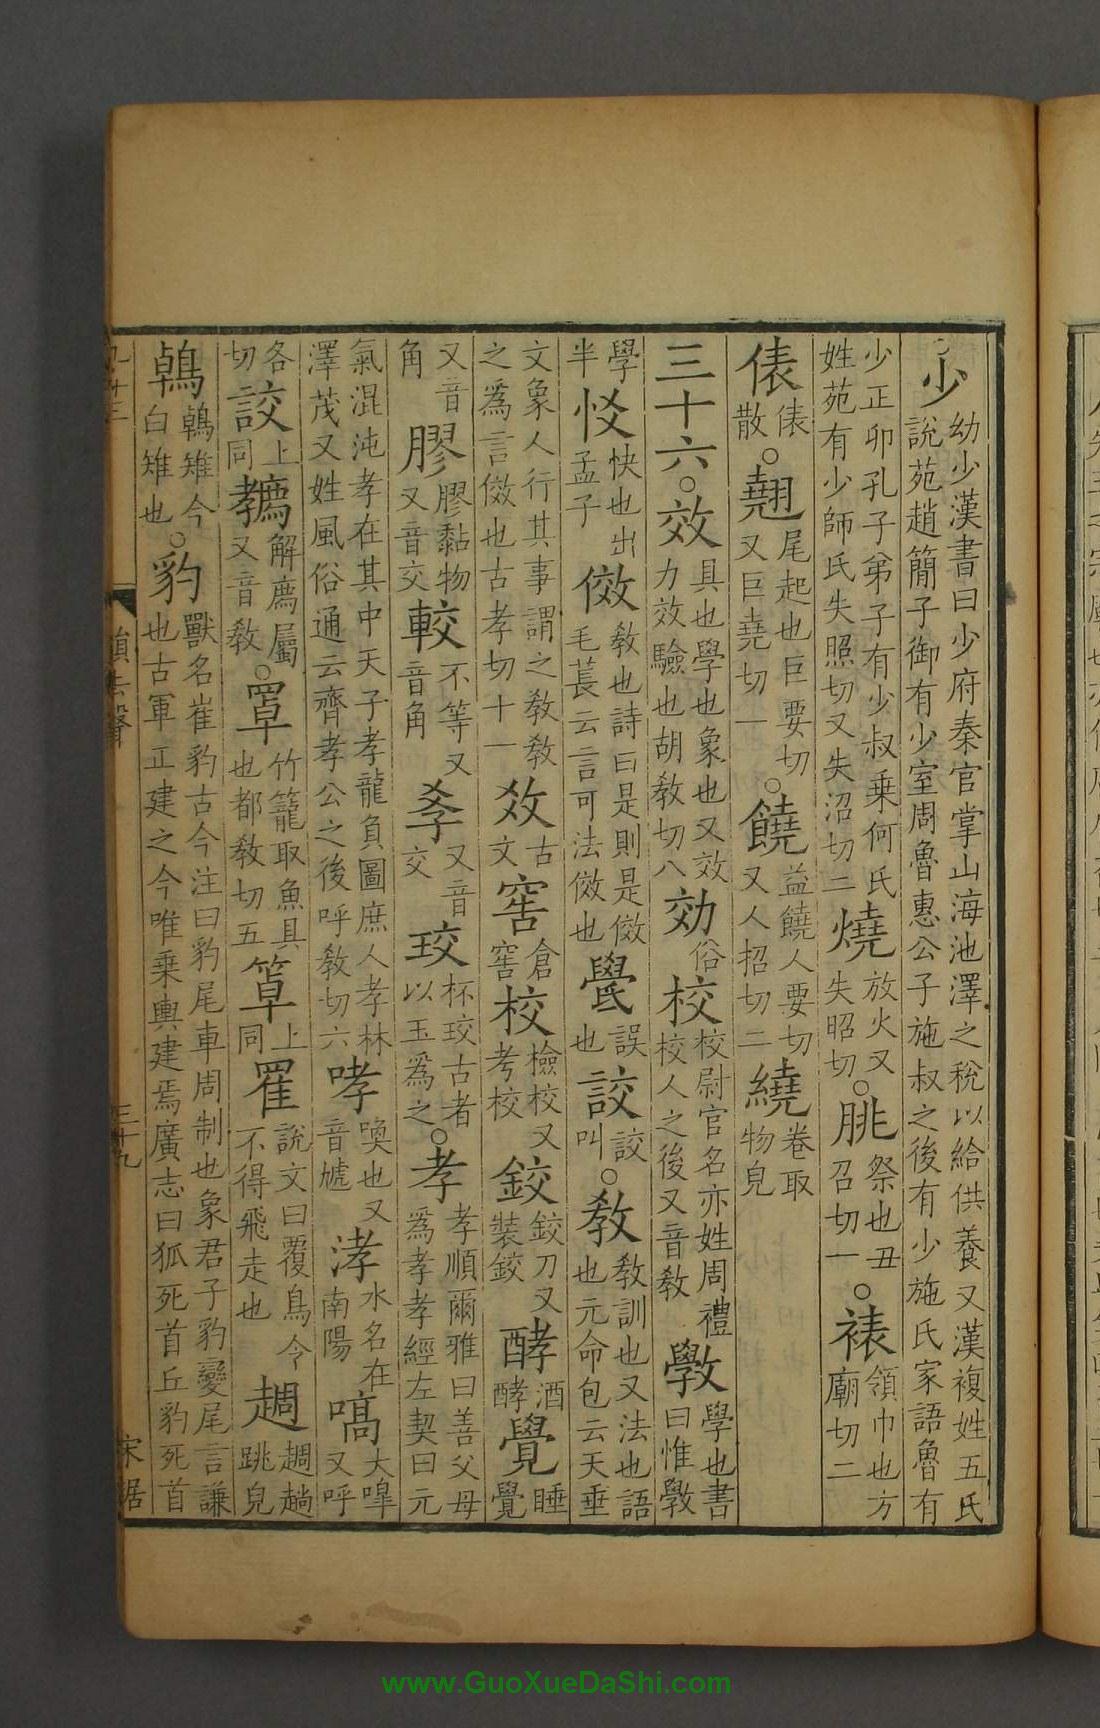 ○少幼少漢書曰少府秦官掌山海池澤之稅以給供養又漢複姓五氏說苑趙簡子御有少室周魯惠公子施叔之後有少施氏家語魯有
少正卯孔子弟子有少叔乗何氏姓苑有少師氏失照切又失沼切二燒放火又失昭切○朓祭也丑召切一○裱領巾也方廟切二
俵俵散○翹尾起也巨要切又巨堯切一○饒益饒人要切又人招切二繞卷取物皃
三十六○效具也學也象也又效力效驗也胡教切八効俗校校尉官名亦姓周禮校人之後又音教斆學也書曰惟斆
學半恔快也出孟子傚教也詩曰是則是傚毛萇云言可法傚也嚳誤也詨詨叫○教教訓也又法也語也元命包云天垂
文象人行其事謂之教教之為言傚也古孝切十一效古文窖倉窖校檢校又考校鉸鉸刀又裝鉸酵酒酵覺睡覺
又音角膠膠黏物又音交較不等又音角㤊又音交珓杯珓古者以玉為之○孝孝順爾雅曰善父母為孝孝經左契曰元
氣混沌孝在其中天子孝龍負圖庶人孝林澤茂又姓風俗通云齊孝公之後呼教切六哮喚也又音虓涍水名在南陽嗃大嘷又呼
各切詨上同䴩解廌屬又音教○罩竹籠取魚具也都教切五箌上同䍜說文曰覆鳥令不得飛走也趠趠趬跳皃
鵫鵫雉今白雉也○豹獸名崔豹古今注曰豹尾車周制也象君子豹變尾言謙也古軍正建之今唯乗輿建焉廣志曰狐死首丘豹死首
三十九
宋琚
www.GuoXueDaShi.com